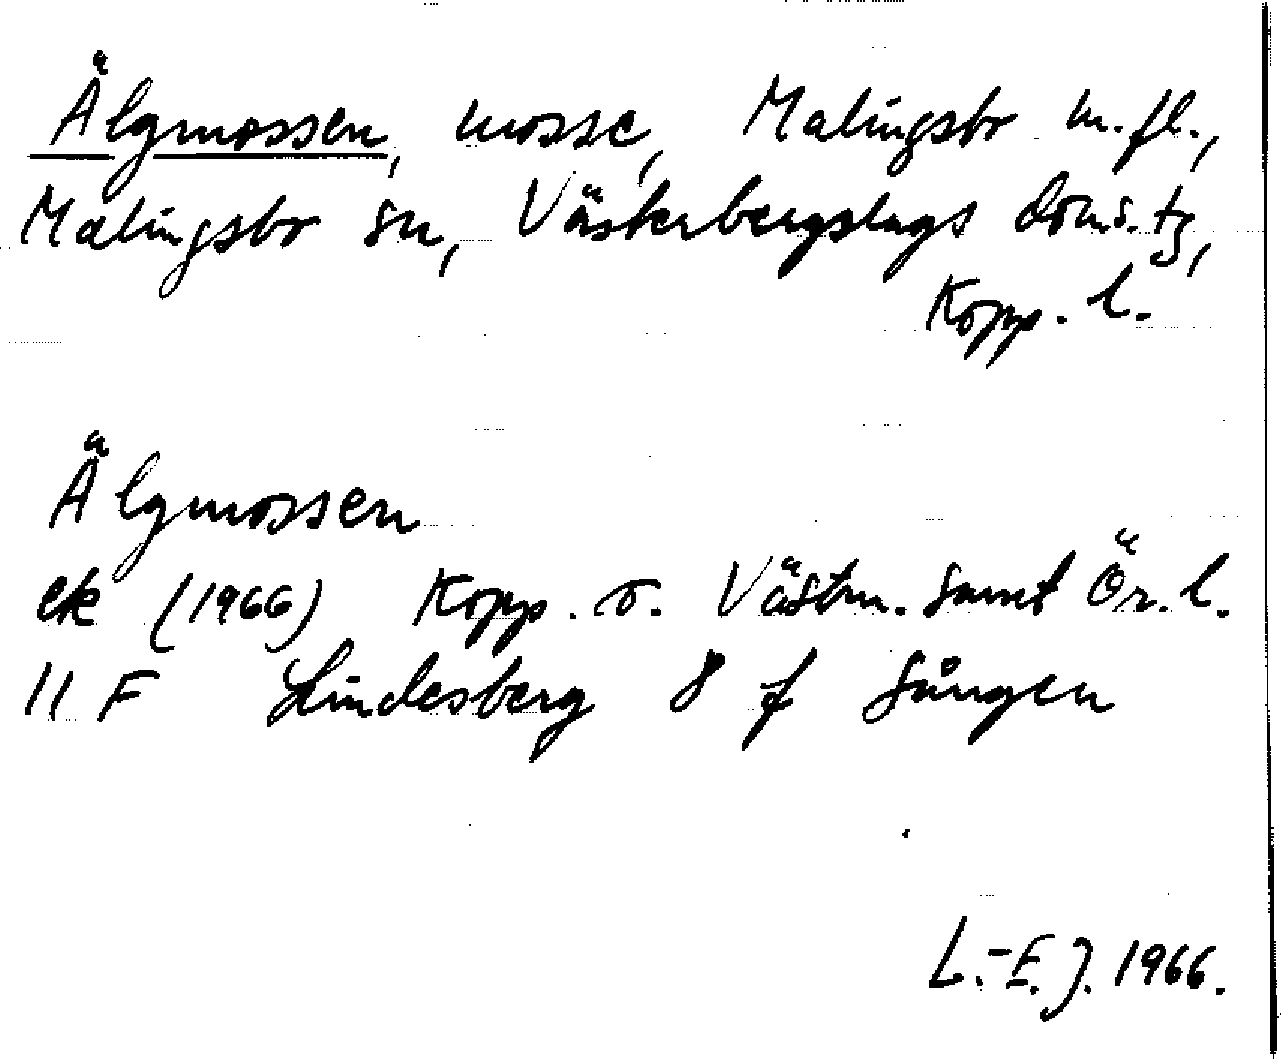 Älgmossen, mosse, Malingsbo m.fl.,
Malingsbo sn, Västerbergslags doms.tg,
Kopp. l.
Älgmossen
ek (1966) Kopp. o. Västm. samt Ör. l.
11 F Lindesberg 8 f Sången
L.-E. J. 1966.